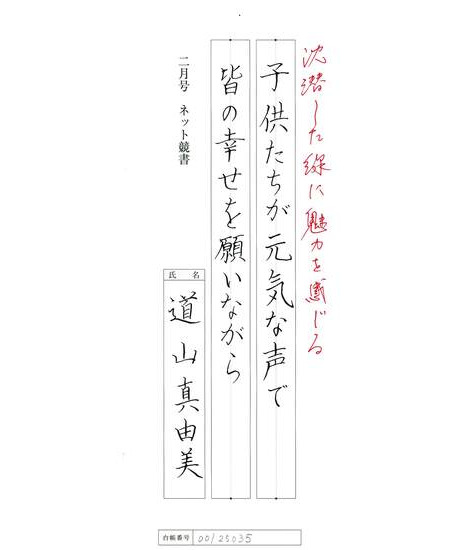 沈潜した線に魅力を感じる
子供たちが元気な声で
皆の幸せを願いながら
二月号 ネット競書
氏 名
道山真由美
台帳番号 00125035